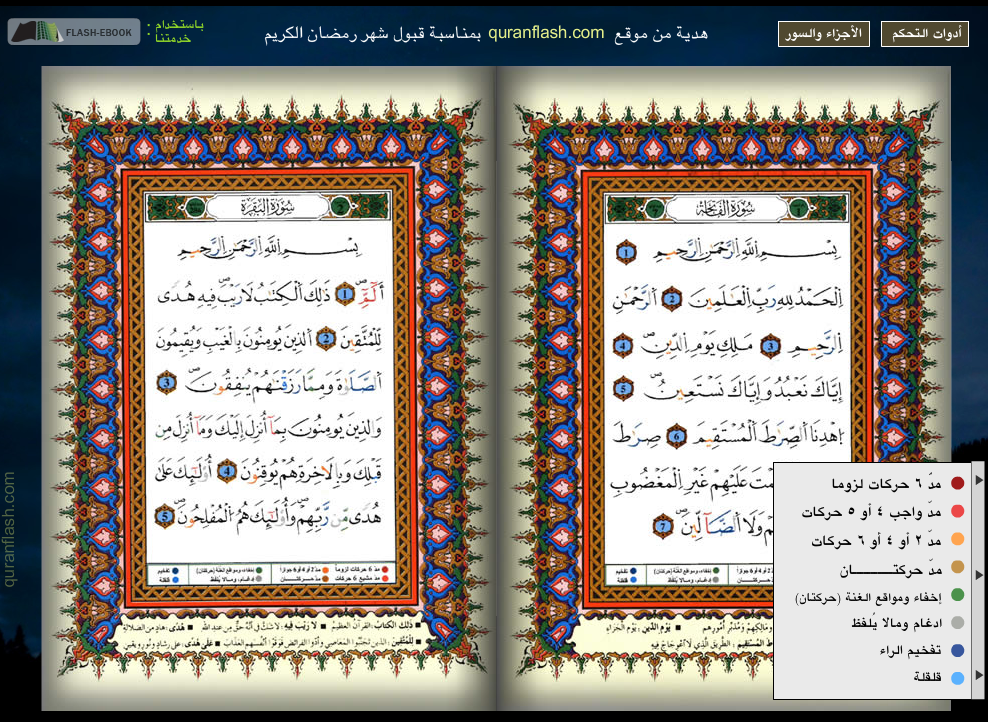 أدوات التحكم
الأجزاء والسور
هدية من موقع quranflash.com بمناسبة قبول شهر رمضان الكريم
باستخدام :
خدمتنا :
FLASH-EBOOK
سُورَةُ الفَاتِحَةِ
بِسْمِ اللَّهِ الرَّحْمَٰنِ الرَّحِيمِ 1
الْحَمْدُ لِلَّهِ رَبِّ الْعَالَمِينَ 2 الرَّحْمَٰنِ
الرَّحِيمِ 3 مَالِكِ يَوْمِ الدِّينِ 4
إِيَّاكَ نَعْبُدُ وَإِيَّاكَ نَسْتَعِينُ 5
اهْدِنَا الصِّرَاطَ الْمُسْتَقِيمَ 6 صِرَاطَ
مْتَ عَلَيْهِمْ غَيْرِ الْمَغْضُوبِ
مْ وَلَا الضَّالِّينَ 7
سُورَةُ البَقَرَةِ
بِسْمِ اللَّهِ الرَّحْمَٰنِ الرَّحِيمِ
الٓمٓ 1 ذَٰلِكَ الْكِتَٰبُ لَا رَيْبَ فِيهِ هُدًى
لِّلْمُتَّقِينَ 2 الَّذِينَ يُؤْمِنُونَ بِالْغَيْبِ وَيُقِيمُونَ
الصَّلَوٰةَ وَمِمَّا رَزَقْنَٰهُمْ يُنفِقُونَ 3
وَالَّذِينَ يُؤْمِنُونَ بِمَا أُنزِلَ إِلَيْكَ وَمَا أُنزِلَ مِن
قَبْلِكَ وَبِالْآخِرَةِ هُمْ يُوقِنُونَ 4 أُولَٰئِكَ عَلَىٰ
هُدًى مِّن رَّبِّهِمْ وَأُولَٰئِكَ هُمُ الْمُفْلِحُونَ 5
مدّ ٦ حركات لزوما
مدّ واجب ٤ أو ٥ حركات
مدّ ٢ أو ٤ أو ٦ حركات
مدّ حركتـــــــان
إخفاء ومواقع الغنة (حركتان)
ادغام ومالا يُلفظ
تفخيم الراء
قلقلة
quranflash.com